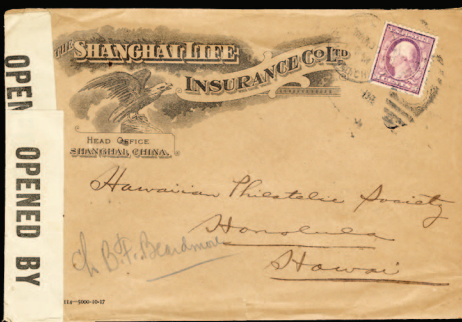 THE SHANGHAI LIFE
INSURANCE CO. LTD
HEAD OFFICE
SHANGHAI, CHINA.
OPEN
OPENED BY
Hawaiian Philatelic Society
Honolulu
Hawaii
B. F. Beardmore